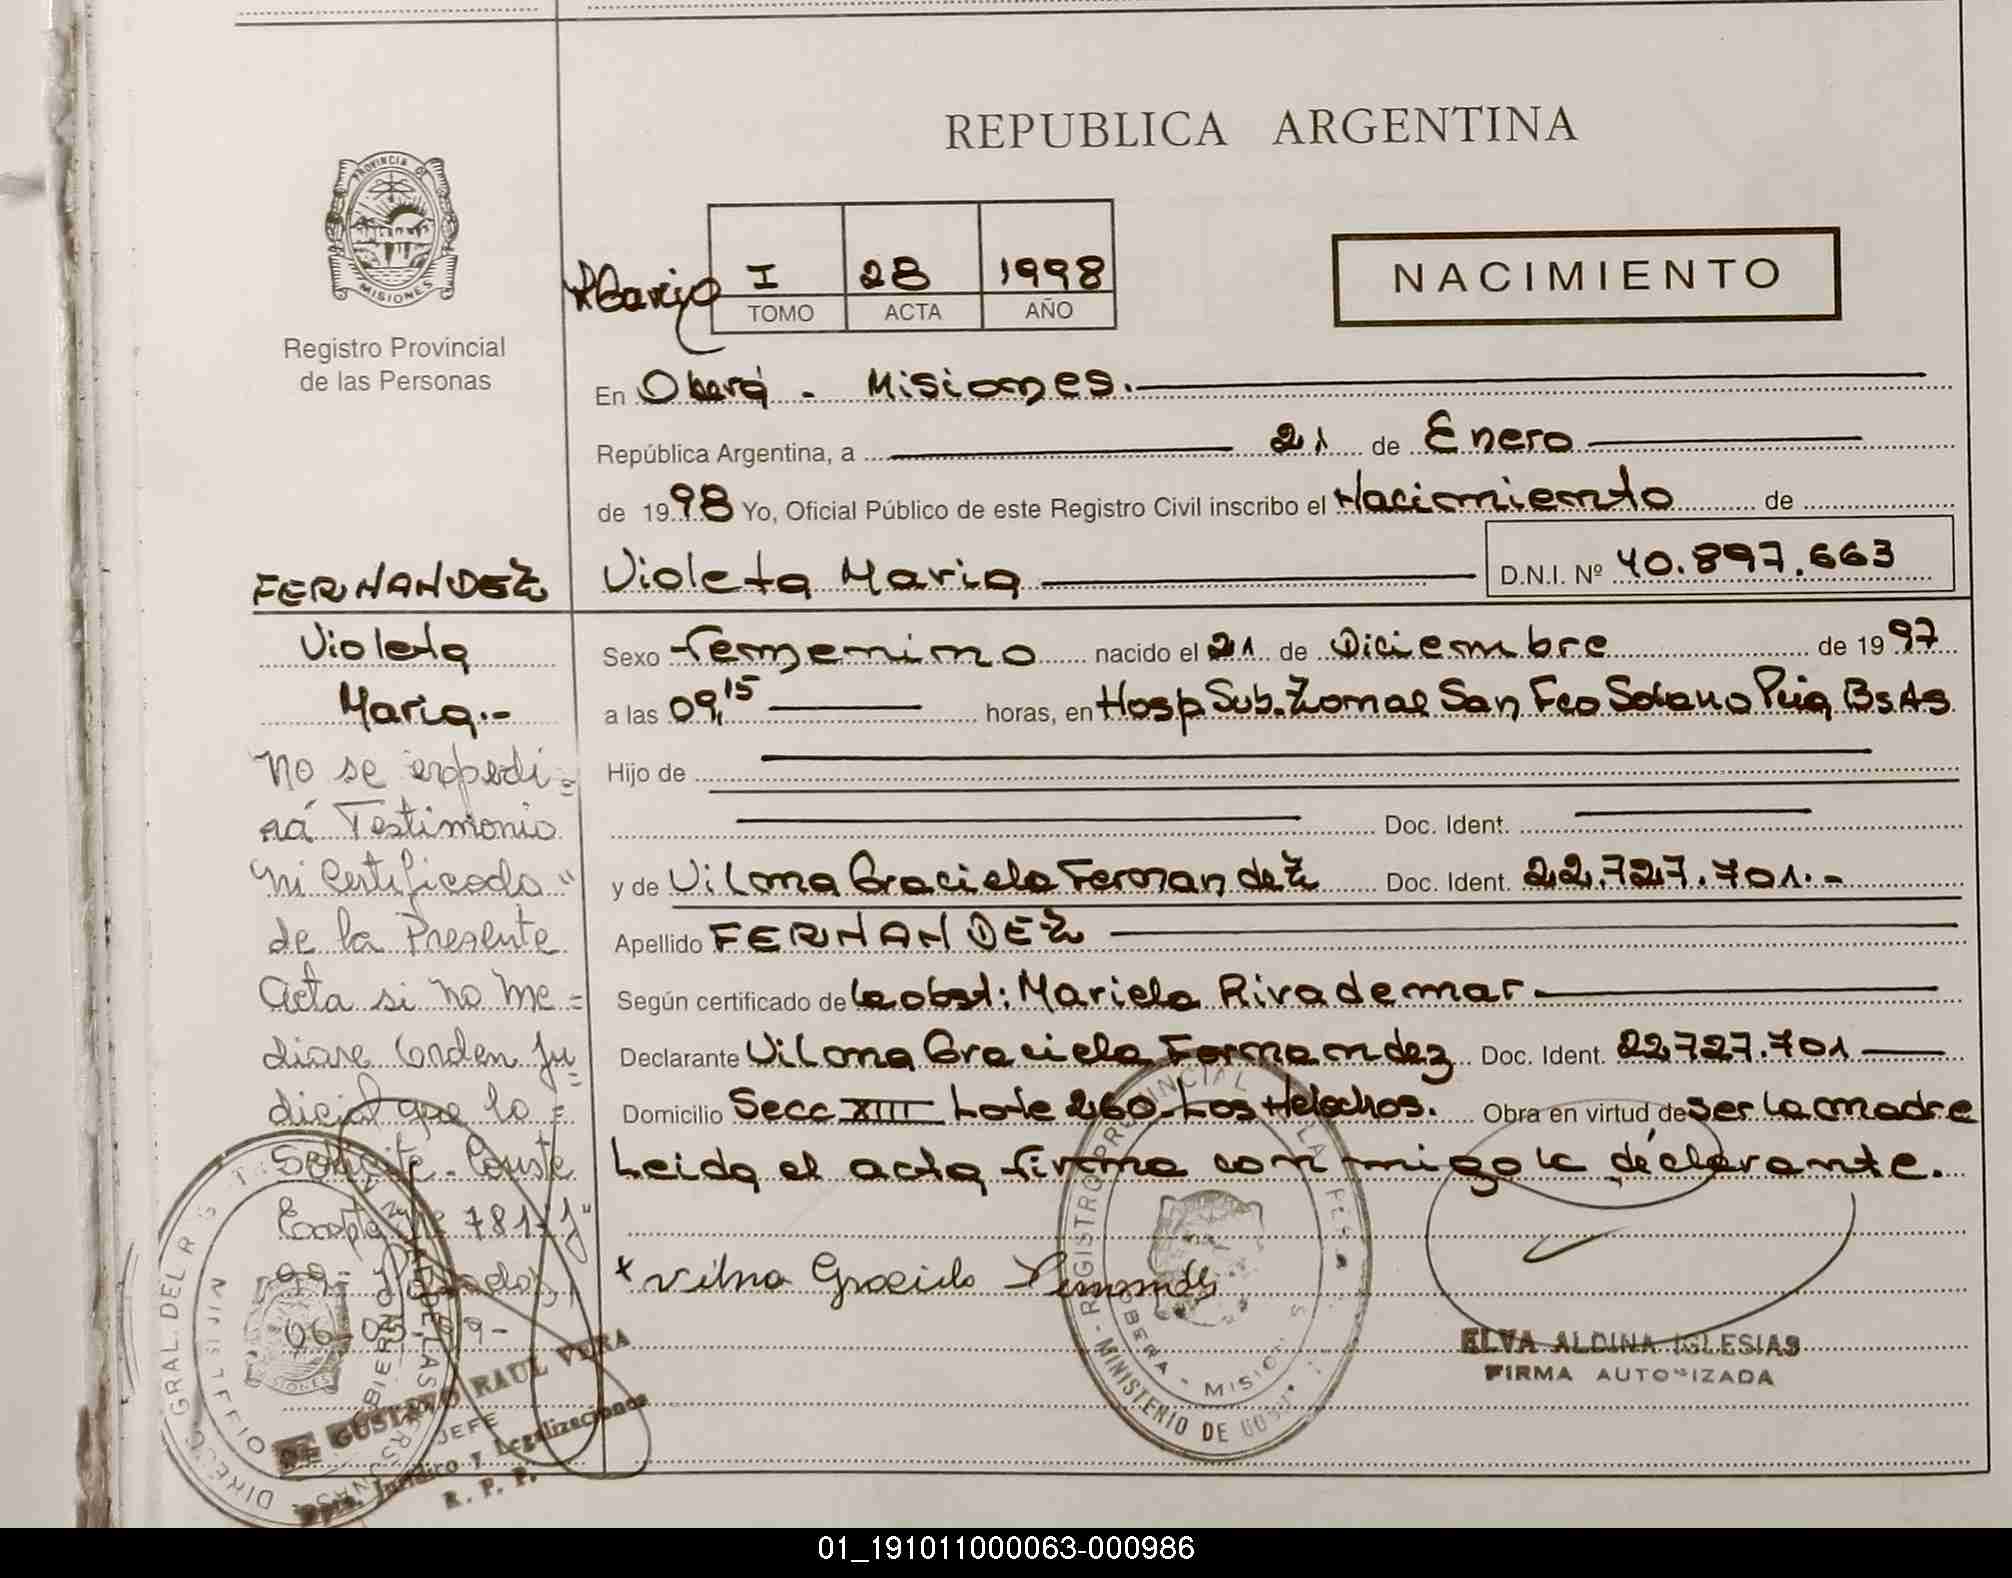 REPUBLICA ARGENTINA
PROVINCIA DE
MISIONES
Registro Provincial
de las Personas
I 28 1998
TOMO ACTA AÑO
NACIMIENTO
En Oberá - Misiones.
República Argentina, a 21 de Enero
de 1998 Yo, Oficial Público de este Registro Civil inscribo el Nacimiento de
FERNANDEZ Violeta Maria D.N.I. Nº 40.897.663
Violeta
Maria.-
Sexo femenino nacido el 21 de Diciembre de 1997
a las 09,15 horas, en Hosp Sub. Zonal San Fco Solano Bs As
Hijo de
Doc. Ident.
y de Vilma Graciela Fernandez Doc. Ident. 22.727.701.-
Apellido FERNANDEZ
Según certificado de la obst: Mariela Rivademar
Declarante Vilma Graciela Fernandez Doc. Ident. 22.727.701
Domicilio Secc XIII Lote 260 Los Helechos. Obra en virtud de ser la madre
Leida el acta firma conmigo la declarante.
Vilma Graciela Fernandez
No se expedi=
rá Testimonio
ni Certificado
de la Presente
Acta si no me=
diare Orden Ju=
dicial que lo
Solicite. Conste
Expte 781
06-05-99-
GUSTAVO RAUL VERA
JEFE
Dpto. Jurídico y Legalizaciones
R. P. P.
REGISTRO PROVINCIAL DE LAS PERSONAS
OBERA - MISIONES
MINISTERIO DE GOB
DIREC. GRAL. DEL REG
ELVA ALDINA IGLESIAS
FIRMA AUTORIZADA
01_191011000063-000986